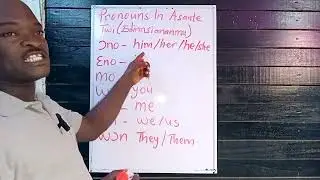 Pronouns In Asante
Twi (Edinnsiananmu)
Ɔno - him/her/he/she
Ɛno -
mo
you
me
we/us
Wɔn They/Them